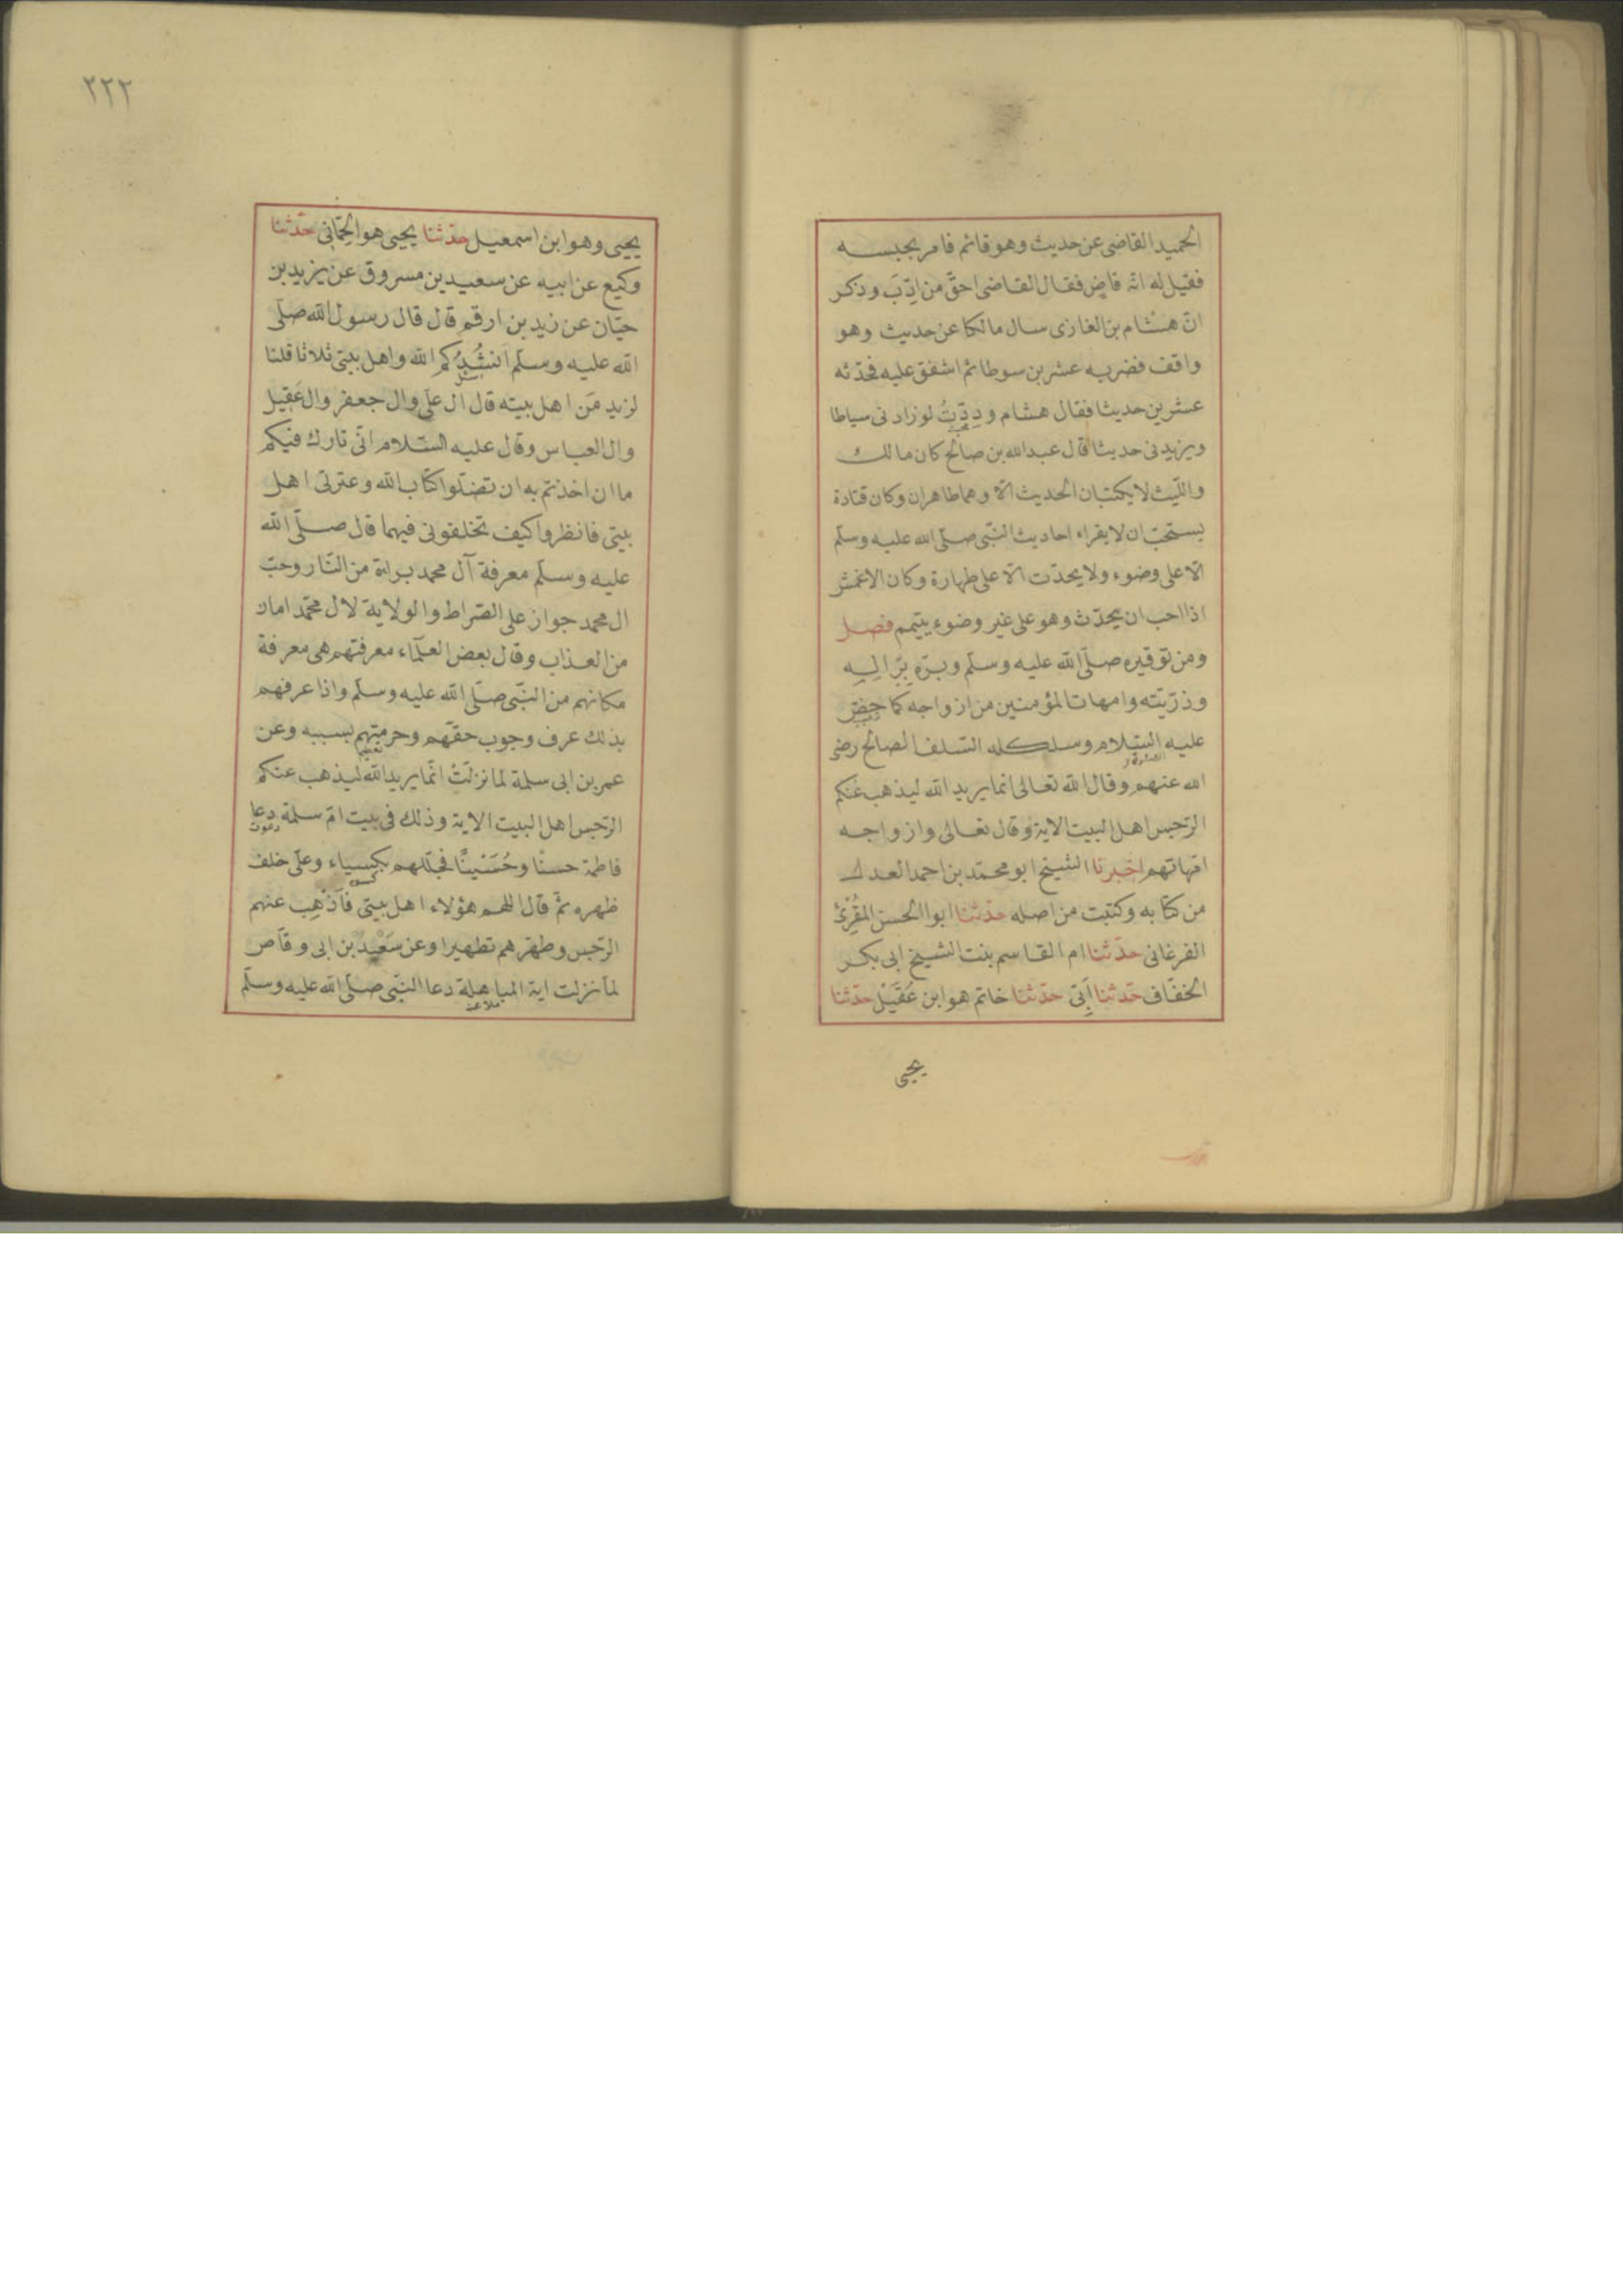 الحميد القاضى عن حديث وهو قائم فامر بحبسه
فقيل له انّه قاضٍ فقال القاضى احقّ من ادّبَ وذكر
انّ هشام بن الغازى سال مالكا عن حديث وهو
واقف فضربه عشرين سوطا ثم اشفق عليه فحدّثه
عشرين حديثا فقال هشام ودِدّتُ لو زادنى سياطا
ويزيدنى حديثا قال عبد الله بن صالح كان مالك
واللّيث لا يكتبان الحديث الّا وهما طاهران وكان قتادة
يستحبّ ان لا يقراء احاديث النبّى صلّى الله عليه وسلّم
الّا على وضوء ولا يحدّث الّا على طهارة وكان الاعمش
اذا احب ان يحدّث وهو على غير وضوء يتيمم فصل
ومن توقيره صلّى الله عليه وسلّم وبرّه بِرّ الِهِ
وذرّيّته وامهات المؤمنين من ازواجه كما حضّ
عليه السّلام وسلكه السّلف الصالح رضى
الله عنهم وقال الله تعالى انما يريد الله ليذهب عنكم
الرّجس اهل البيت الاية وقال تعالى وازواجه
امّهاتهم اخبرنا الشيخ ابو محمّد بن احمد العدل
من كتابه وكتبت من اصله حدّثنا ابوا الحسن المقْرِئ
الفرغانى حدّثنا ام القاسم بنت الشيخ ابى بكر
الخفّاف حدّثنا اَبِى حدّثنا خاتم هو ابن عُقَيْل حدّثنا
يحيى
٢٢٢
يحيى وهو ابن اسمعيل حدّثنا يحيى هو الحِمّانى حدّثنا
وكيع عن ابيه عن سعيد بن مسروق عن يزيد بن
حيّان عن زيد بن ارقم قال قال رسول الله صلّى
الله عليه وسلّم اَنشُدُكم الله واهل بيتى ثلاثا قلنا
لزيد مَن اهل بيته قال ال علّى وال جعفر وال عَقِيل
وال العباس وقال عليه السّلام انّى تارك فيكم
ما ان اخذتم به ان تضلّوا كتاب الله وعترتى اهل
بيتى فانظروا كيف تخلفونى فيهما قال صلّى الله
عليه وسلّم معرفة آل محمد براءة من النّار وحبّ
ال محمد جواز على الصّراط والولاية لال محمّد امان
من العذاب وقال بعض العلمآء معرفتهم هى معرفة
مكانهم من النبّى صلّى الله عليه وسلّم واذا عرفهم
بذلك عرف وجوب حقّهم وحرمتهم بسببه وعن
عمر بن ابى سلمة لما نزلَتْ انّما يريد الله ليذهب عنكم
الرّجس اهل البيت الاية وذلك فى بيت امّ سلمة دعا
فاطمة حسنًا وحُسَيْنًا فجلّلهم بكسياء وعلّى خلف
ظهره ثمّ قال اللهم هؤلاء اهل بيتى فَاَذْهِب عنهم
الرّجس وطهّرهم تطهيرا وعن سَعْيد بن ابى وقاص
لمّا نزلت اية المباهلة دعا النبّى صلّى الله عليه وسلّم
ملاعنه